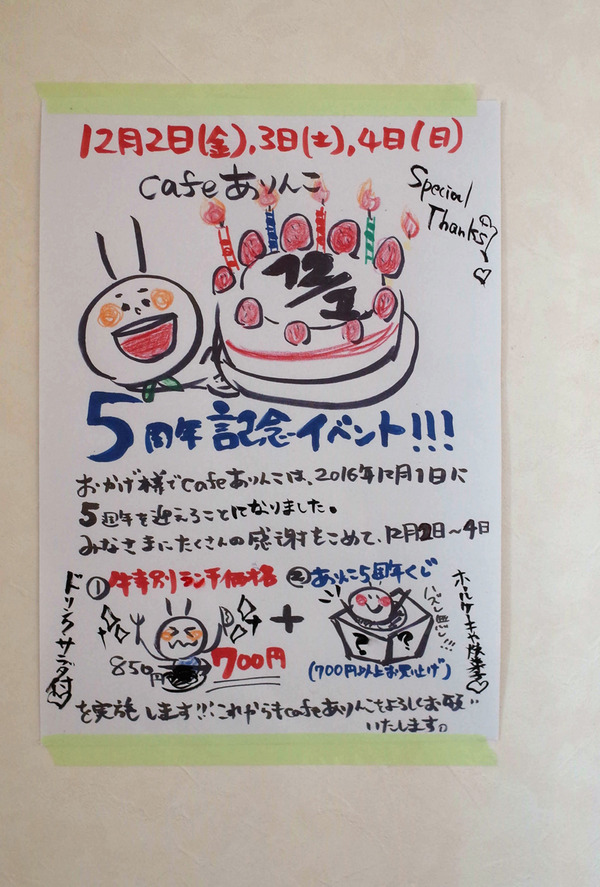 12月2日(金),3日(土),4日(日)
cafeありんこ
Special
Thanks
12/1
5周年記念イベント!!!
おかげ様でcafeありんこは、2016年12月1日に
5周年を迎えることになりました。
みなさまにたくさんの感謝をこめて、12月2日~4日
①特別ランチ価格
850円
700円
ドリンクサラダ付
+
②ありんこ5周年くじ
ハズレ無し!!!
? ?
(700円以上お買上げ)
ホールケーキや
を実施します!!!これからもcafeありんこをよろしくお願い
いたします。